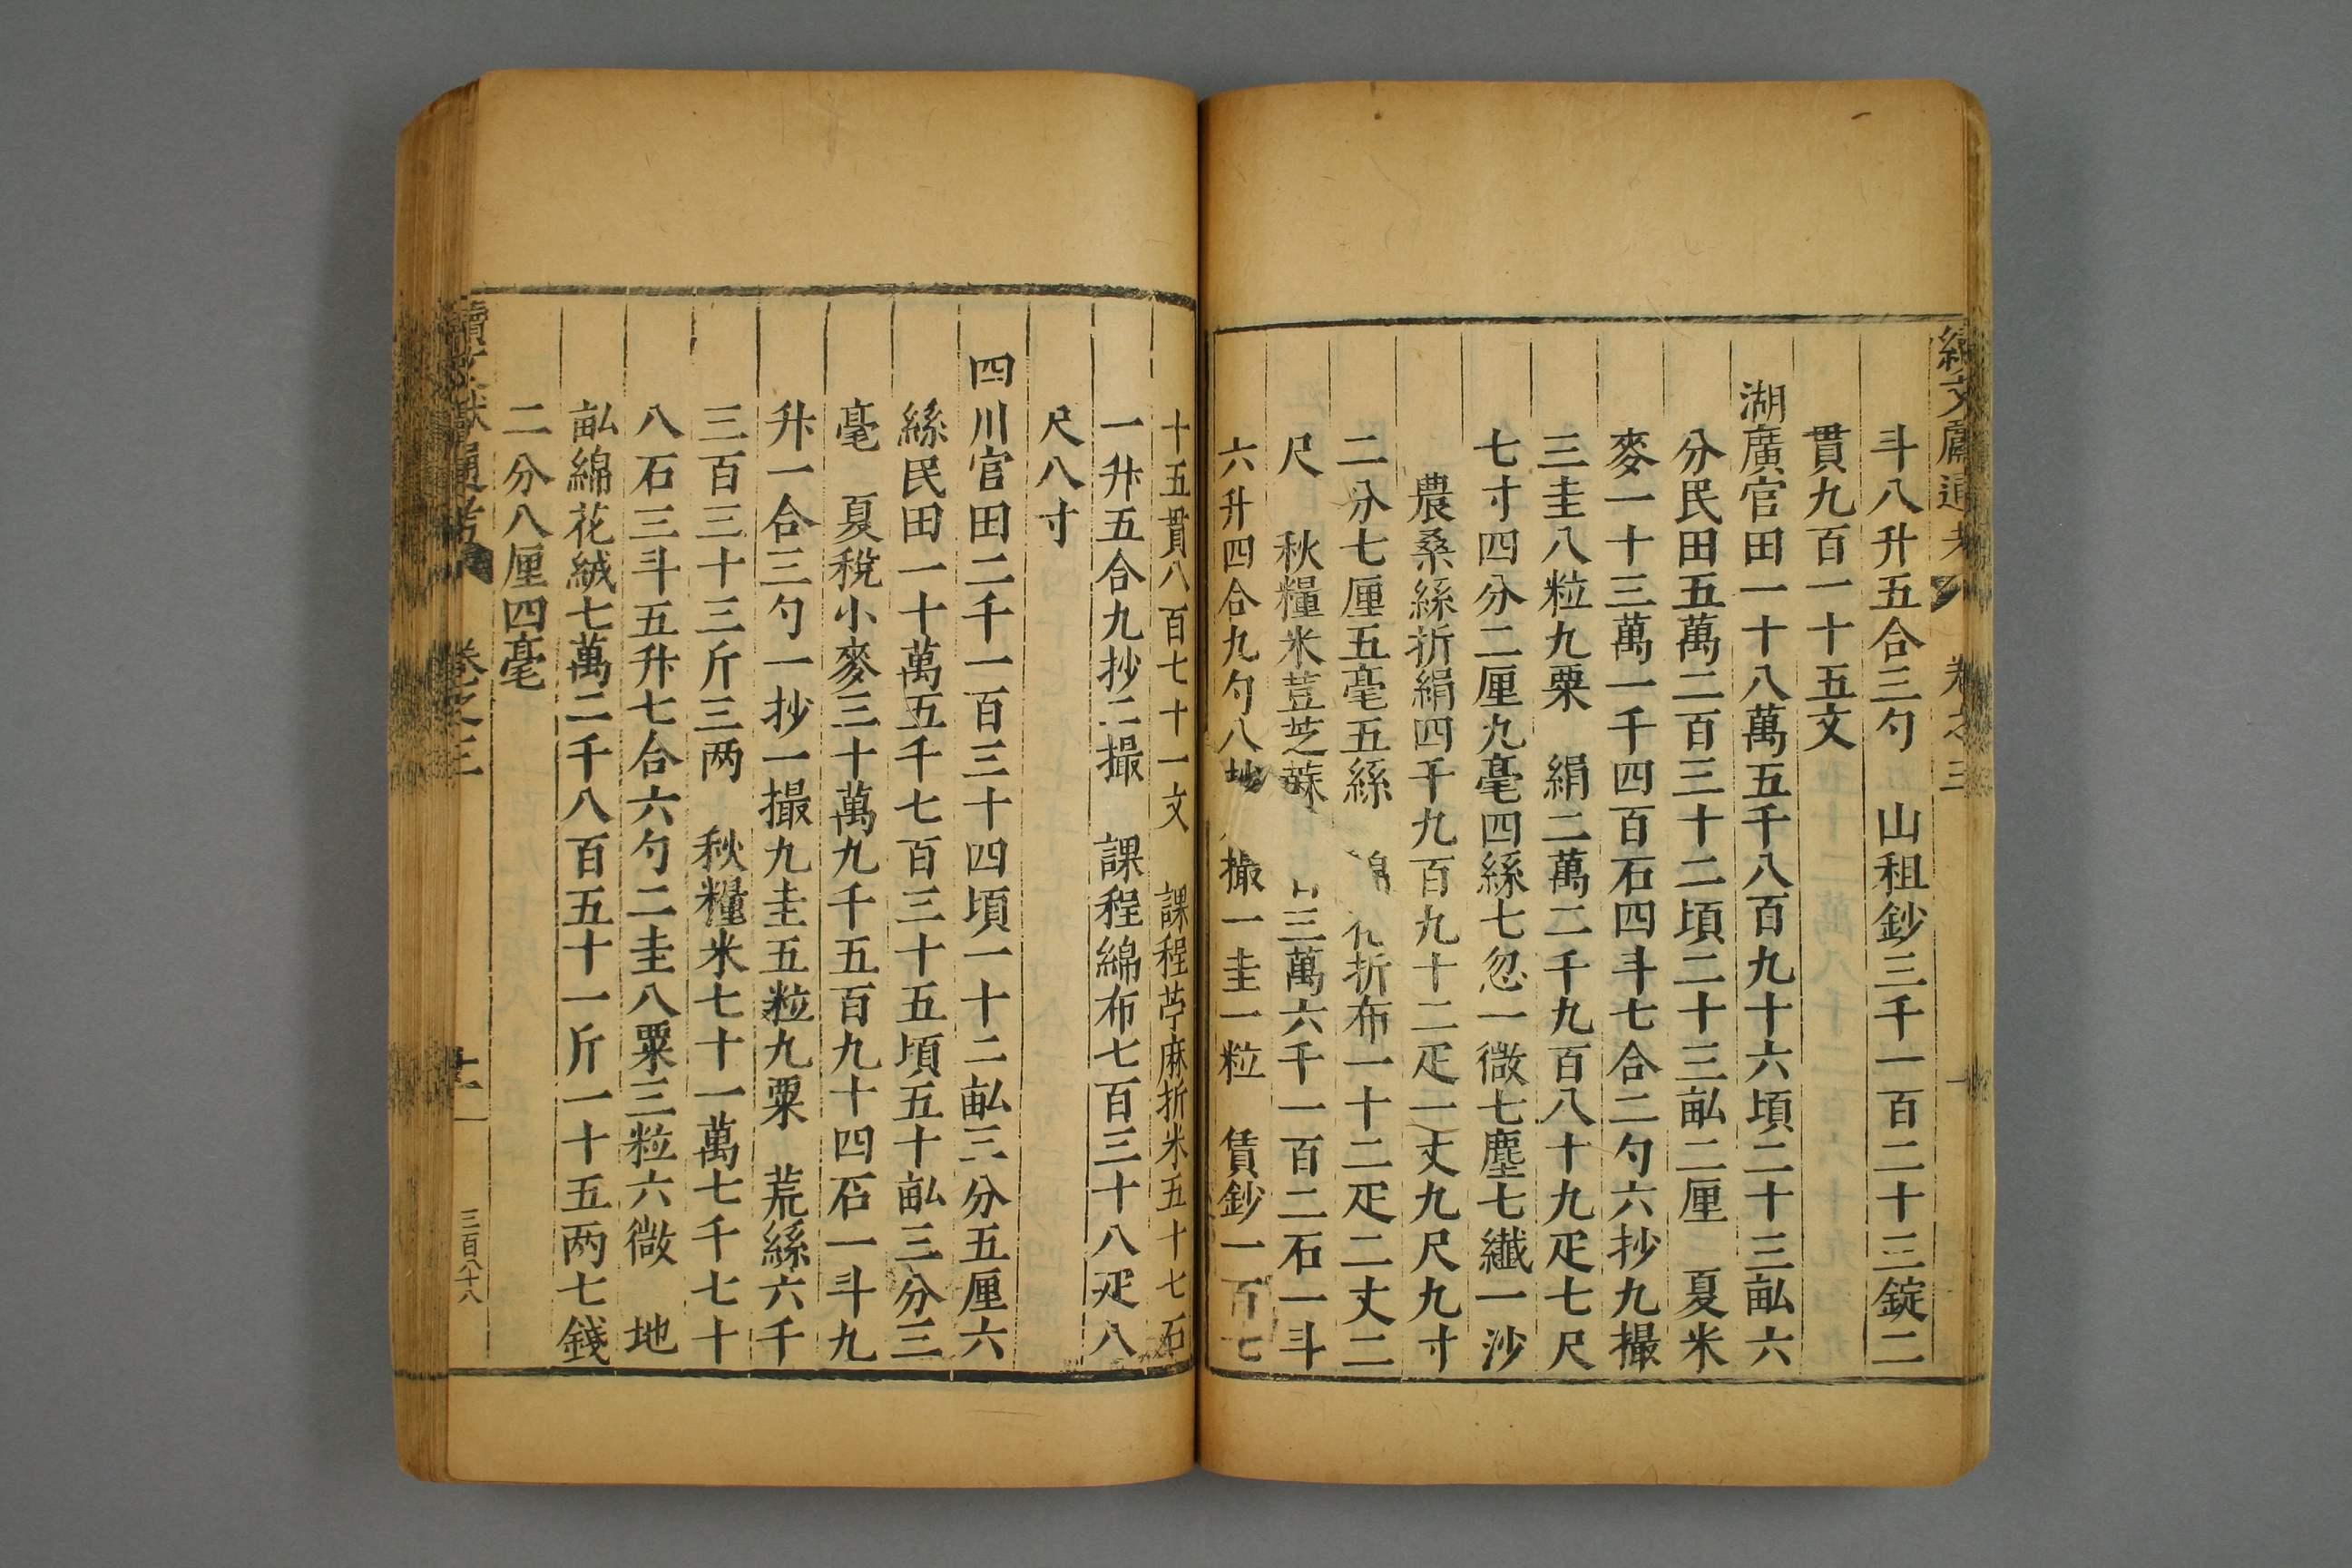 續文獻通考 卷之三
斗八升五合三勺 山租鈔三千一百二十三錠二
貫九百一十五文
湖廣官田一十八萬五千八百九十六頃二十三畝六
分民田五萬二百三十二頃二十三畝二厘 夏米
麥一十三萬一千四百石四斗七合二勺六抄九撮
三圭八粒九粟 絹二萬二千九百八十九疋七尺
七寸四分二厘九毫四絲七忽一微七塵七纎一沙
農桑絲折絹四千九百九十二疋一丈九尺九寸
二分七厘五毫五絲 綿花折布一十二疋二丈二
尺 秋糧米荳芝蔴 三萬六千一百二石一斗
六升四合九勺八抄 撮一圭一粒 賃鈔一百七
十五貫八百七十一文 課程苧麻折米五十七石
一升五合九抄二撮 課程綿布七百三十八疋八
尺八寸
四川官田二千一百三十四頃一十二畝三分五厘六
絲民田一十萬五千七百三十五頃五十畝三分三
毫 夏稅小麥三十萬九千五百九十四石一斗九
升一合三勺一抄一撮九圭五粒九粟 荒絲六千
三百三十三斤三两 秋糧米七十一萬七千七十
八石三斗五升七合六勺二圭八粟三粒六微 地
畝綿花絨七萬二千八百五十一斤一十五两七錢
二分八厘四毫
續文獻通考 卷之三 十一 三百八十八